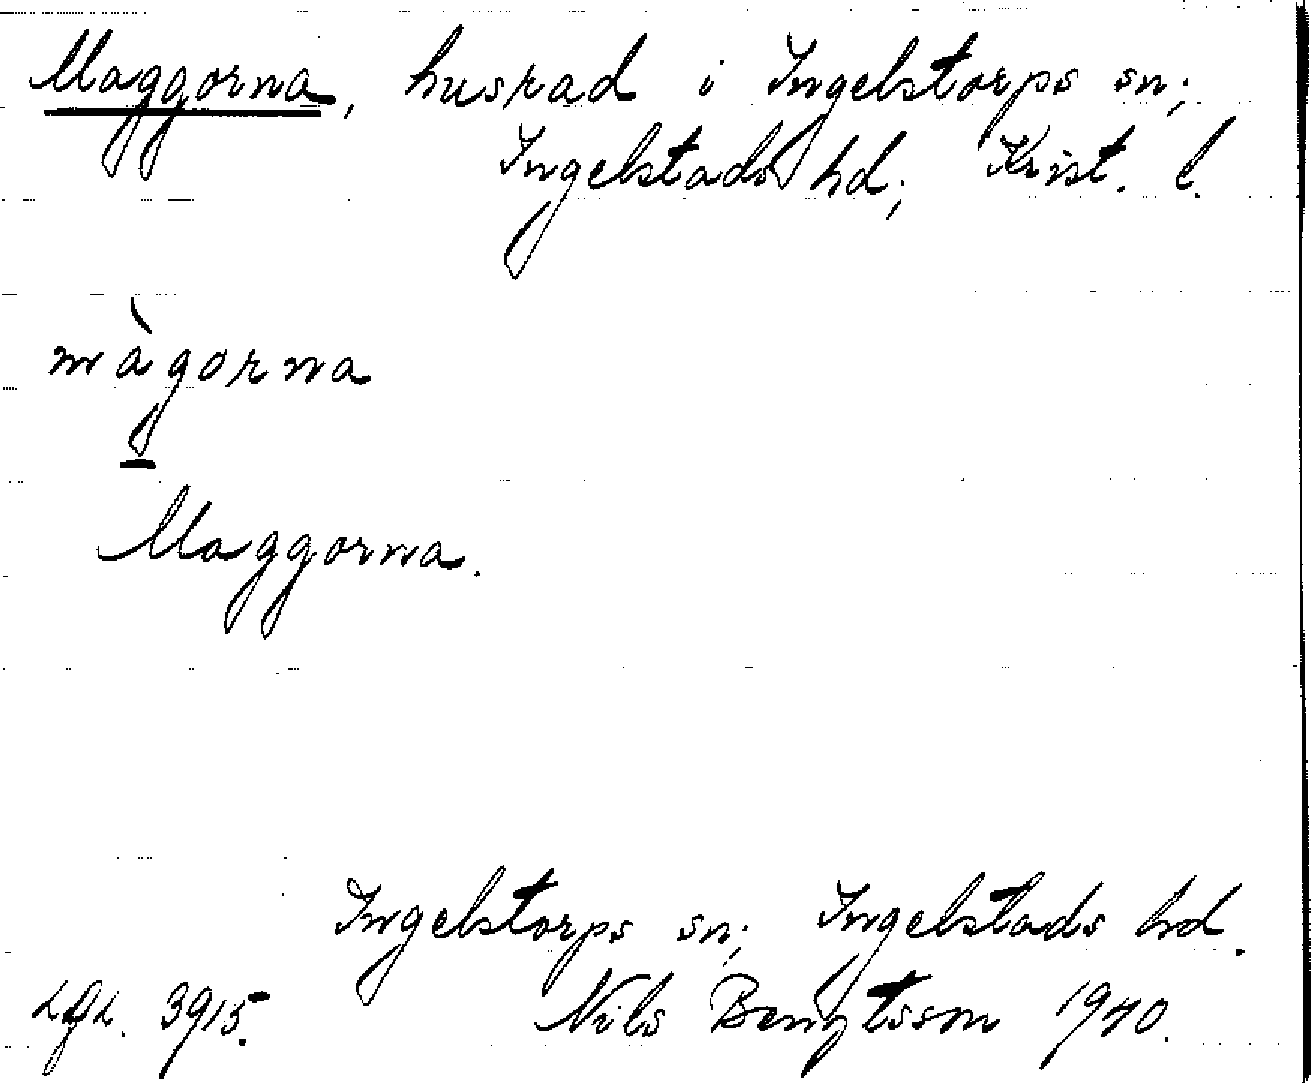 Maggorna, husrad i Ingelstorps sn;
Ingelstads hd; Krist. l.
màgorna
Maggorna.
Ingelstorps sn; Ingelstads hd.
LGL. 3915. Nils Bengtsson 1940.